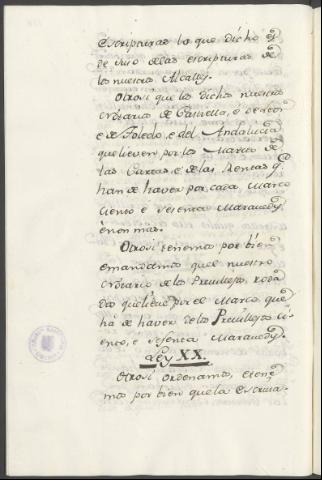 escripturas lo que dicho es
de suso delas escripturas de
los nuestros Alcalles.
Otrosi que los dichos nuestros
notarios de Castiella, e de Leon
e de Toledo, e del Andalucia
que lieven por los Marcos de
las Cartas, e de las Rentas q.
han de haver por cada Marco
ciento e sesenta Maravedis
e non mas.
Otrosi tenemos por bien
e mandamos quel nuestro
notario de los Previllejos roda
dos que lieve por el Marco que
ha de haver delos Previllejos ci
ento, e sesenta Maravedis.
Ley XX.
Otrosi ordenamos, e tene
mos por bien que la escriva-